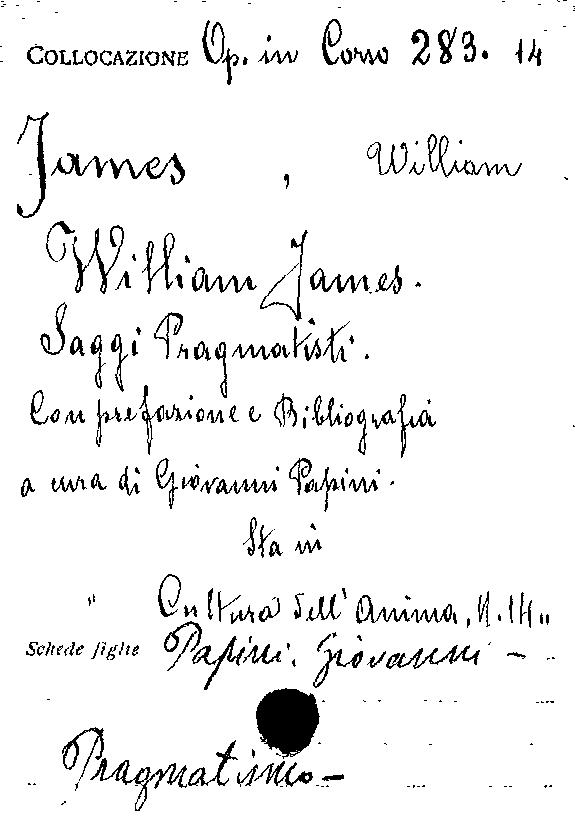 COLLOCAZIONE Op. in Corso 283. 14
James, William
William James.
Saggi Pragmatisti.
Con prefazione e Bibliografia
a cura di Giovanni Papini.
Sta in
" Cultura dell'Anima, N. 14 "
Schede figlie Papini, Giovanni —
Pragmatismo —